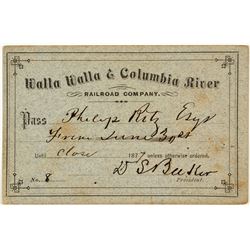 Walla Walla & Columbia River
RAILROAD COMPANY.
Pass Philip Ritz Esqr
From June 30
Until close 1877 unless otherwise ordered.
No. 8
President.